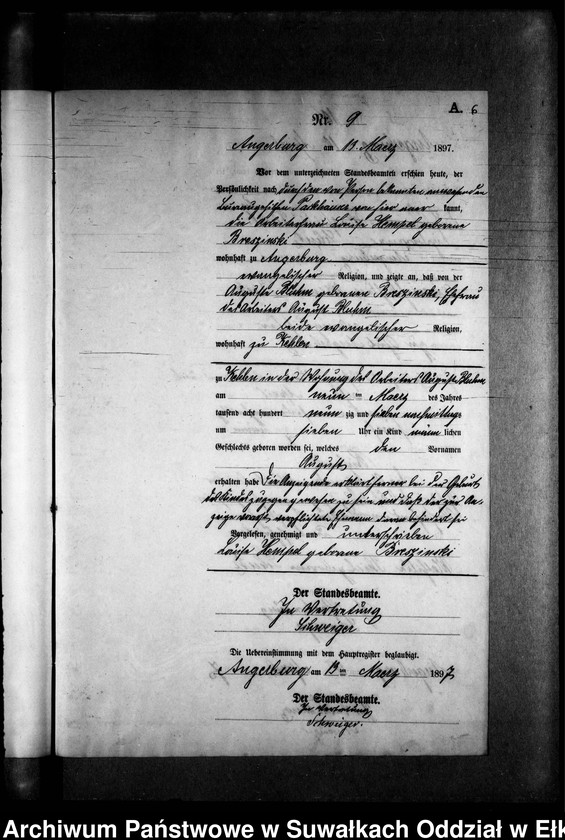 A. 6
Nr. 9
Angerburg am 13 Maerz 1897.
Vor dem unterzeichneten Standesbeamten erschien heute, der
Persönlichkeit nach durch den von Person bekannten
kannt,
die Arbeiterfrau Louise Hempel geborene
Breszinski
wohnhaft zu Angerburg
evangelischer Religion, und zeigte an, daß von der
Auguste Bluhm geborenen Breszinski, Ehefrau
des Arbeiters August Bluhm
beide evangelischer Religion,
wohnhaft zu Kehlen
zu Kehlen in der Wohnung des Arbeiters August Bluhm
am neun ten Maerz des Jahres
tausend acht hundert neun zig und sieben nachmittags
um sieben Uhr ein Kind männ lichen
Geschlechts geboren worden sei, welches den Vornamen
August
erhalten habe. Die Anzeigende erklärt ferner bei der Geburt
des Kindes zugegen gewesen zu sein und daß der zur An-
zeige verpflichtete Ehemann daran behindert sei
Vorgelesen, genehmigt und unterschrieben
Louise Hempel geborene Breszinski
Der Standesbeamte.
In Vertretung
Schweiger
Die Uebereinstimmung mit dem Hauptregister beglaubigt.
Angerburg am 13 ten Maerz 1897
Der Standesbeamte.
In Vertretung
Schweiger.
Archiwum Państwowe w Suwałkach Oddział w Ełk